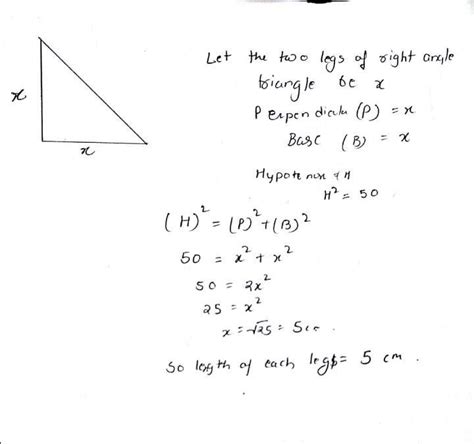 x
x
Let the two legs of right angle
triangle be x
Perpendicular (P) = x
Base (B) = x
Hypotenuse
H² = 50
(H)² = (P)² + (B)²
50 = x² + x²
50 = 2x²
25 = x²
x = √25 = 5cm.
So length of each legs = 5 cm.